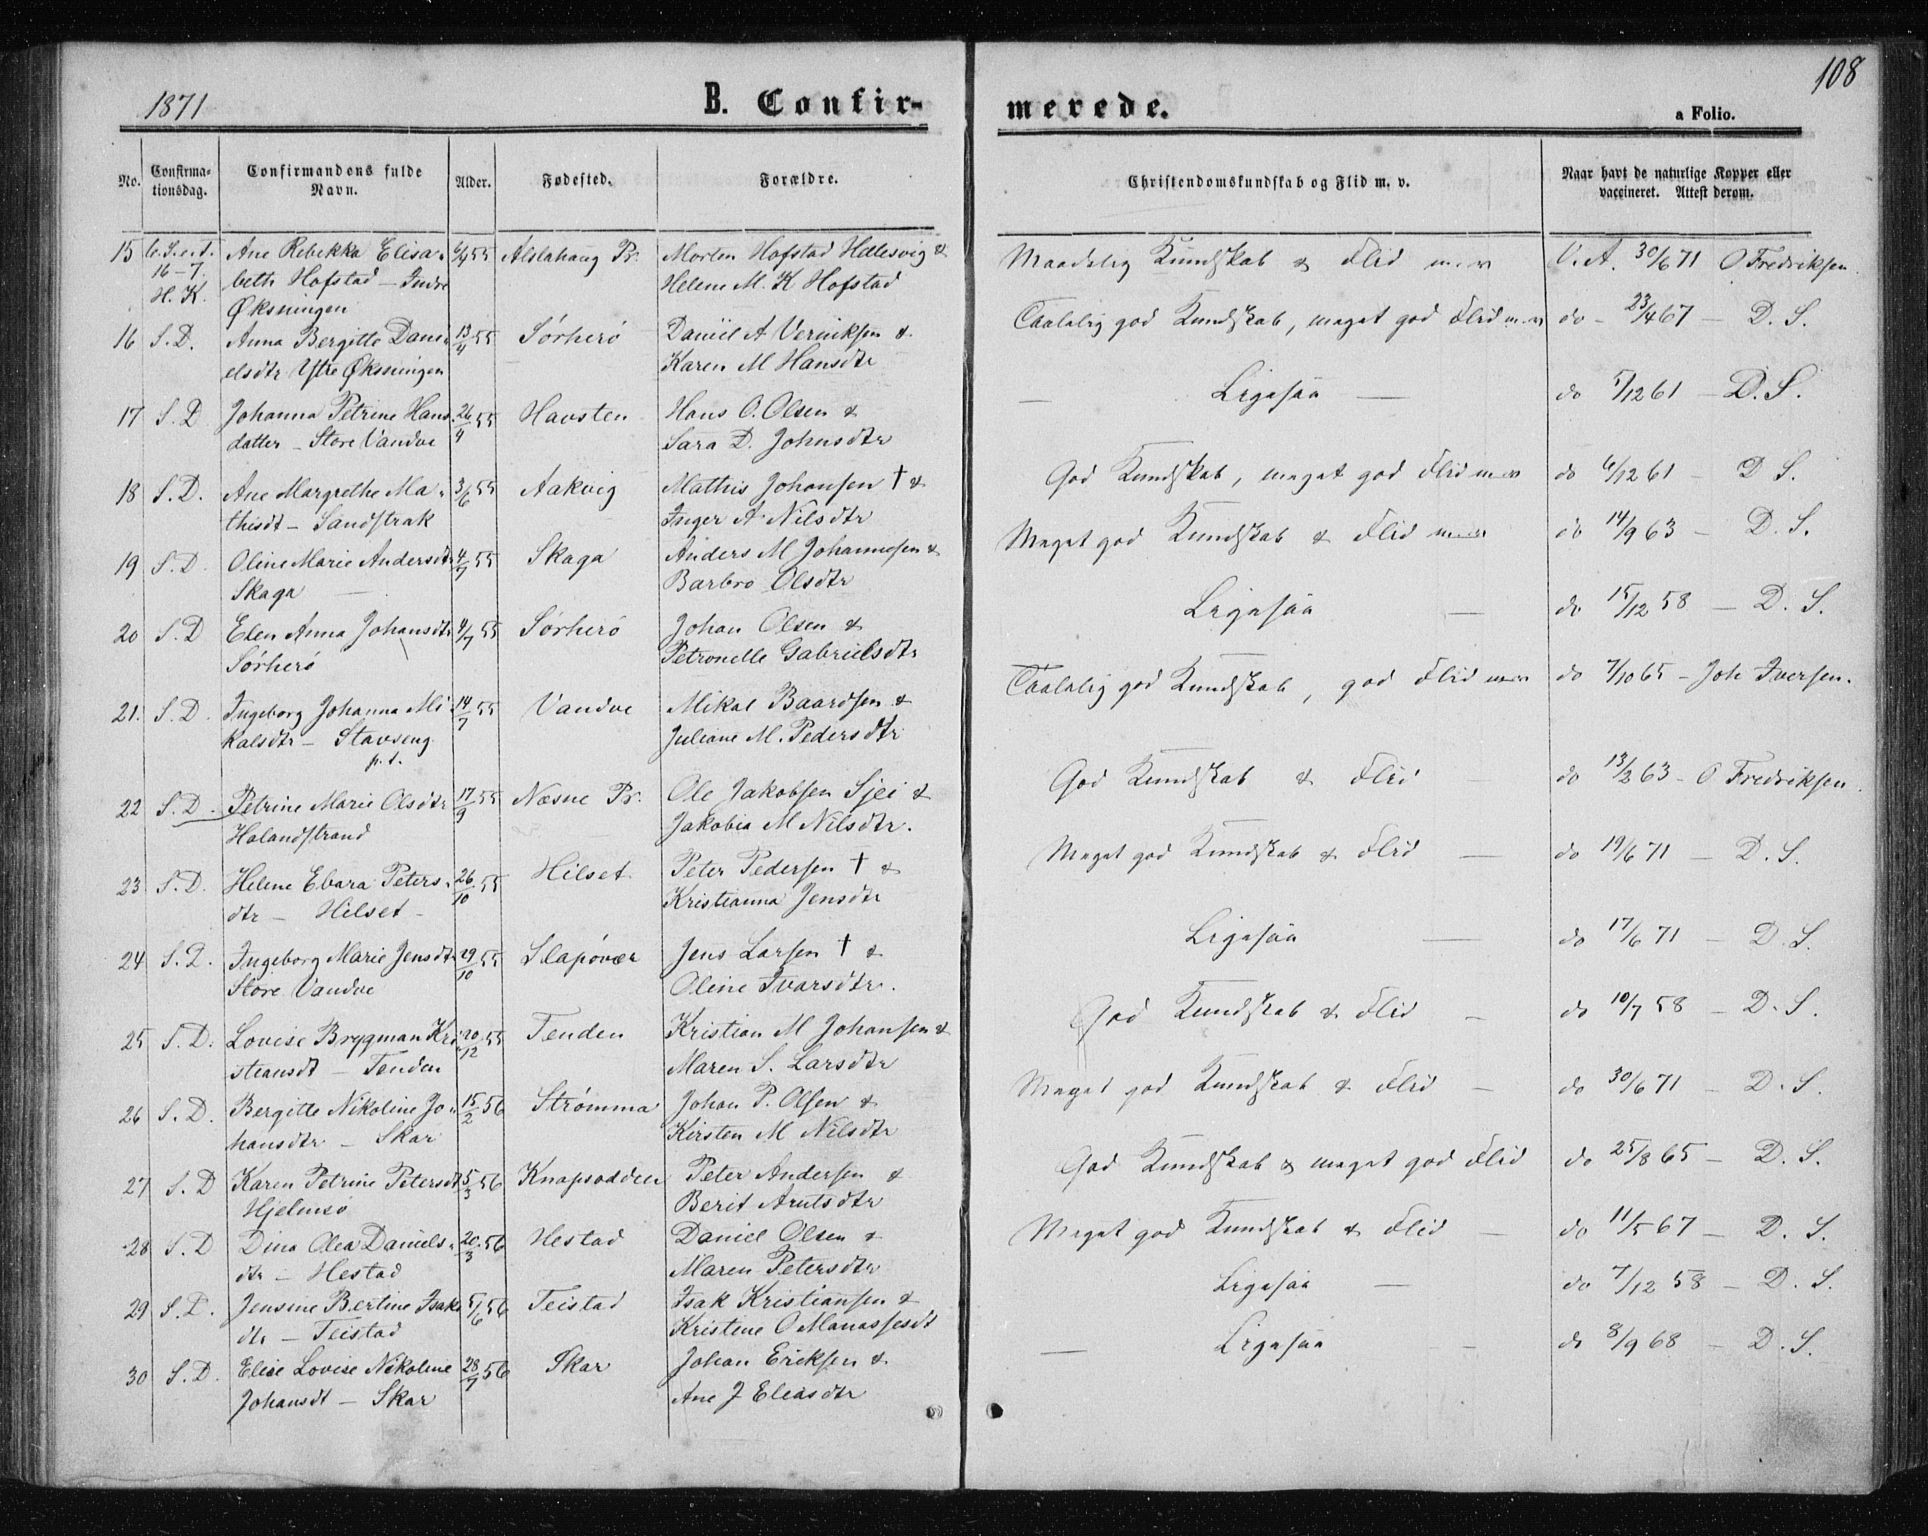 1871
B. Confir-
merede.
108
a Folio.
No.
Confirma-
tionsdag.
Confirmandens fulde
Navn.
Alder.
Fødested.
Forældre.
Christendomskundskab og Flid m. v.
Naar havt de naturlige Kopper eller
vaccineret. Attest derom.
15 6. S. e. t. Ane Rebekka Elisa- 6/4 55 Alslahaug Pr. Morten Hofstad Hellesvig &
16-7. beth Hofstad - Indre Helene M. K Hofstad
H. K. Øksningen
Maadelig Kundskab & Flid m.v V. A. 30/6 71 O Fredriksen.
16 S. D. Anna Bergitte Dani- 13/4 55 Sørherø Daniil A &
elsdtr Ytre Øksningen Karen M Hansdtr
Taalelig god Kundskab, meget god Flid m.v do - 23/4 67 - D. S.
17 S. D Johanna Petrine Hans- 26/4 55 Havsten Hans O. Olsen &
datter - Store Vandve Sara D. Johnsdtr
- Ligesaa - do 5/12 61 - D. S.
18 S. D. Ane Margrethe Ma- 3/6 55 Aakvig Mathis Johansen † &
thisdt - Sandstrak Inger A Nilsdtr
God Kundskab, meget god Flid m.v do 6/12 61 - D S.
19 S. D. Oline Marie Andersdtr 4/7 55 Skaga Anders M Johannesen &
Skaga - Barbro Olsdtr
Meget god Kundskab & Flid m.v do 14/9 63 - D. S.
20 S. D Elen Anna Johansdtr 4/7 55 Sørherø Johan Olsen &
Sørherø Petronelle Gabrielsdtr
Ligesaa - do 15/12 58 - D. S.
21. S. D. Ingeborg Johanna Mi- 14/7 55 Vandve Mikal Baardsen &
kalsdtr - Stavseng Juliane M. Pedersdtr
p. t.
Taalelig god Kundskab, god Flid m.v do 7/10 65 - Joh Iversen.
22 S. D. Petrine Marie Olsdtr 17/9 55 Næsne Pr. Ole Jakobsen Sjei &
Halandstrand Jakobia M Nilsdtr.
God Kundskab & Flid - do 13/2 63 - O Fredriksen.
23 S. D. Helene Ebara Peters- 26/10 55 Hilset Peter Pedersen † &
dtr - Hilset - Kristianna Jensdtr
Meget god Kundskab & Flid - do 19/6 71 - D. S.
24 S. D. Ingeborg Marie Jensdtr 29/10 55 Slapøvær Jens Larsen † &
Store Vandve Oline Ivarsdtr.
Ligesaa - do 17/6 71 - D. S.
25 S. D. Lovise Brygman Kri- 20/12 55 Tenden Kristian M Johansen &
stiansdt - Tenden Maren S. Larsdtr
God Kundskab & Flid - do 10/7 58 - D. S.
26 S. D. Bergitte Nikoline Jo- 15/2 56 Strømma Johan P. Olsen &
hansdtr - Skar Kirsten M Nilsdtr
Meget god Kundskab & Flid - do 30/6 71 - D. S.
27 S. D Karen Petrine Petersdt 5/3 56 Knapsodden Peter Andersen &
Hjelmsø Berit Arntsdtr
God Kundskab & meget god Flid do 25/8 65 - D. S.
28 S. D Dina Olea Daniels- 20/3 56 Hestad Daniel Olsen &
dtr - Hestad Maren Petersdtr
Meget god Kundskab & Flid - do 11/5 67 - D. S.
29 S. D. Jensine Bertine Isaks 5/6 56 Teistad Isak Kristiansen &
dtr - Teistad Kristene O Manassesdt
Ligesaa - do 7/12 58 - D. S.
30 S. D. Elise Lovise Nikoline 28/7 56 Skar Johan Eriksen &
Johansdt - Skar Ane J Eliasdtr
- Ligesaa - do 8/9 68 - D. S.